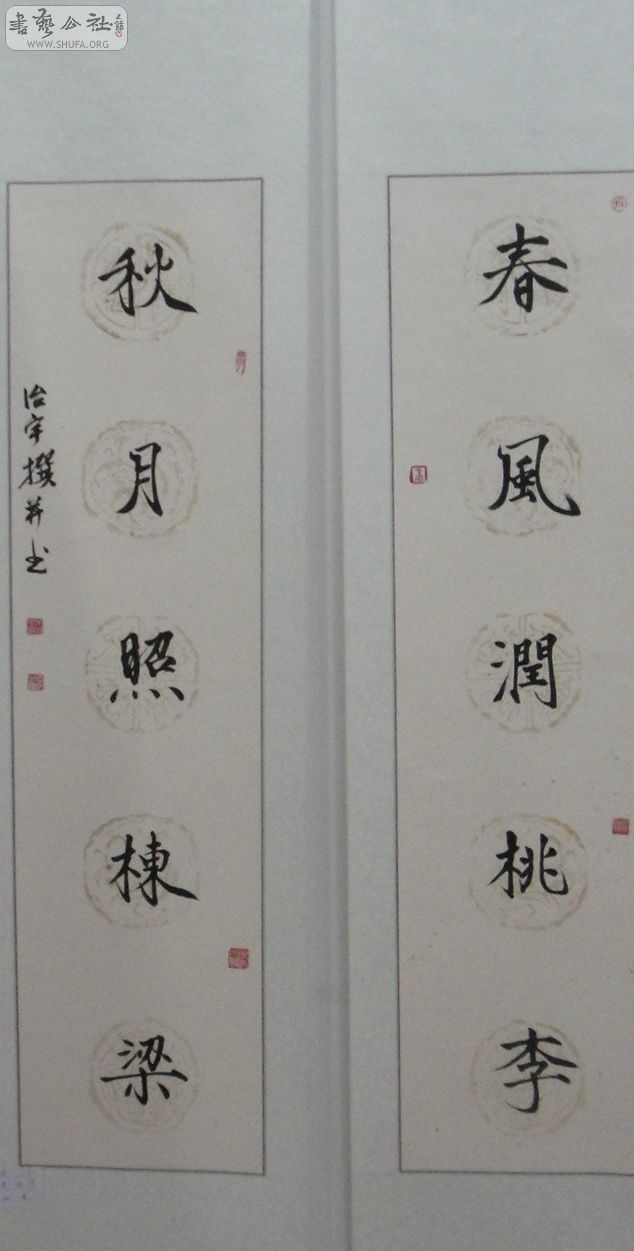 春風潤桃李
秋月照棟梁
治宇撰并书
書藝公社
WWW.SHUFA.ORG